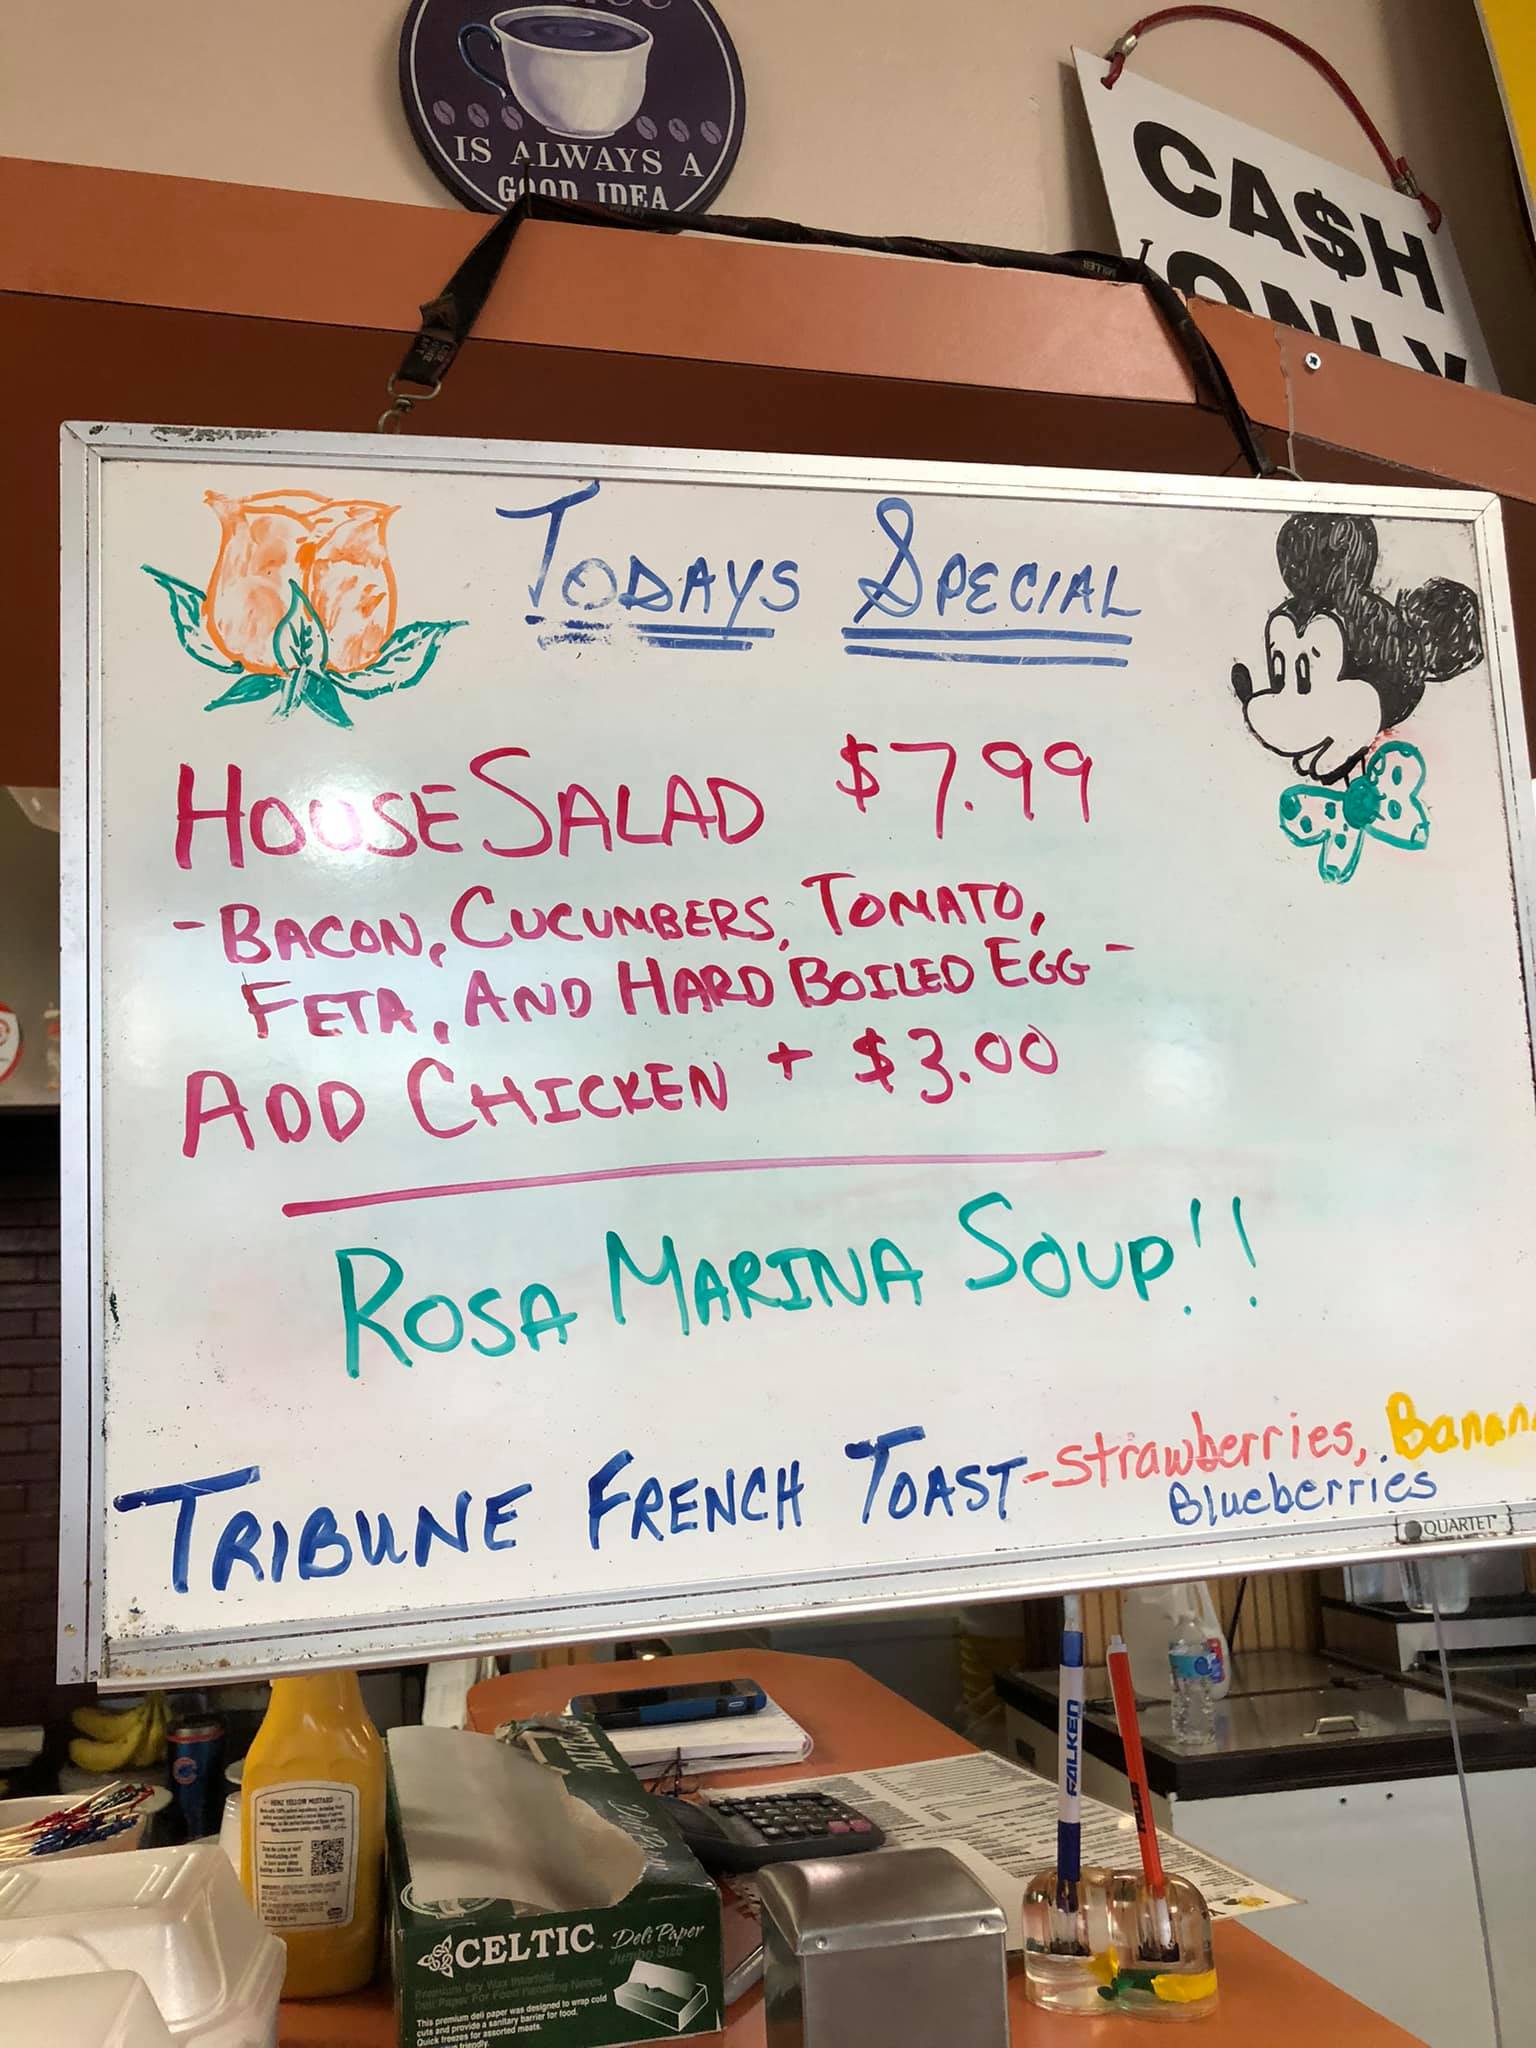 IS ALWAYS A
GOOD IDEA
CA$H
ONLY
MILLER
TODAYS SPECIAL
HOUSE SALAD $7.99
- BACON, CUCUMBERS, TOMATO,
FETA, AND HARD BOILED EGG -
ADD CHICKEN + $3.00
ROSA MARINA SOUP!!
TRIBUNE FRENCH TOAST - strawberries, Banana
Blueberries
QUARTET
HEINZ YELLOW MUSTARD
FALKEN
CELTIC Deli Paper
Jumbo Size
Premium Dry Wax Interfold
Deli Paper For Food Handling Needs
This premium deli paper was designed to wrap cold
cuts and provide a sanitary barrier for food.
Quick freezes for assorted meats.